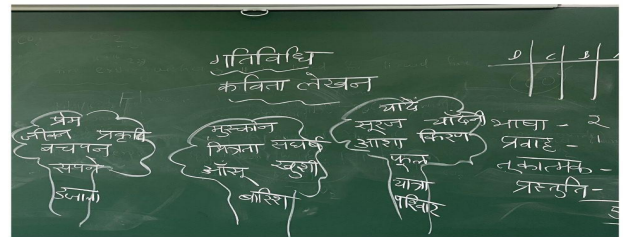 गतिविधि
कविता लेखन
प्रेम
जीवन प्रकृति
बचपन
सपने
उजाला
मुस्कान
मित्रता संघर्ष
आँसू खुशी
बारिश
यादें
सूरज चाँदनी
आशा किरण
फूल
यात्रा
परिवार
D C B
भाषा - 2
प्रवाह - 1
तुकात्मक -
प्रस्तुति -
5